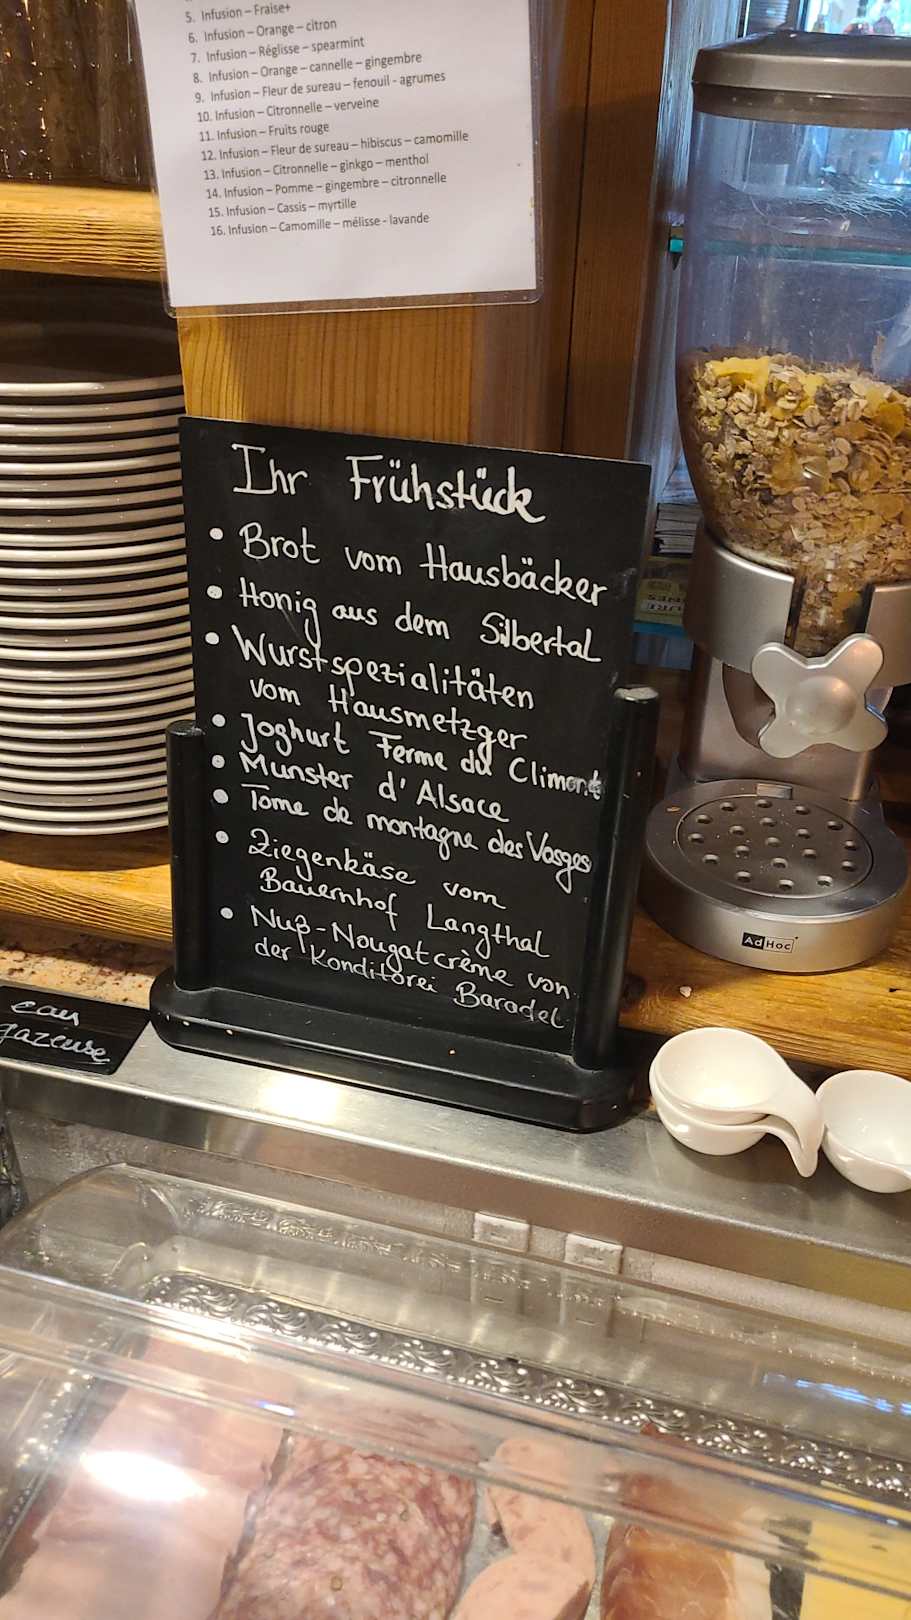 5. Infusion – Fraise+
6. Infusion – Orange – citron
7. Infusion – Réglisse – spearmint
8. Infusion – Orange – cannelle – gingembre
9. Infusion – Fleur de sureau – fenouil - agrumes
10. Infusion – Citronnelle – verveine
11. Infusion – Fruits rouge
12. Infusion – Fleur de sureau – hibiscus – camomille
13. Infusion – Citronnelle – ginkgo – menthol
14. Infusion – Pomme – gingembre – citronnelle
15. Infusion – Cassis – myrtille
16. Infusion – Camomille – mélisse - lavande
Ihr Frühstück
• Brot vom Hausbäcker
• Honig aus dem Silbertal
• Wurstspezialitäten
vom Hausmetzger
• Joghurt Ferme du Climont
• Munster d'Alsace
• Tome de montagne des Vosges
• Ziegenkäse vom
Bauernhof Langthal
• Nuß-Nougatcrème von
der Konditorei Baradel
eau
gazeuse
AdHoc